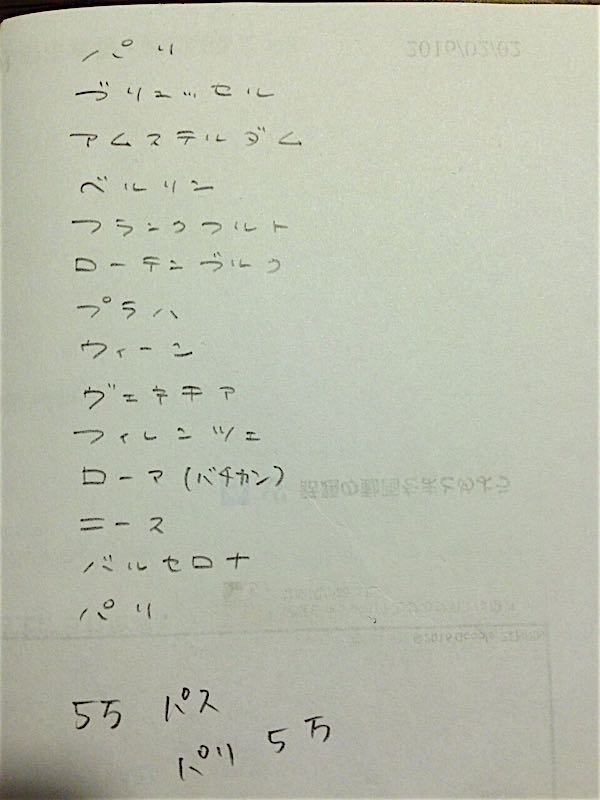 パリ
ブリュッセル
アムステルダム
ベルリン
フランクフルト
ローテンブルク
プラハ
ウィーン
ヴェネチア
フィレンツェ
ローマ(バチカン)
ニース
バルセロナ
パリ
5万 パス
パリ 5万
2016/02/02